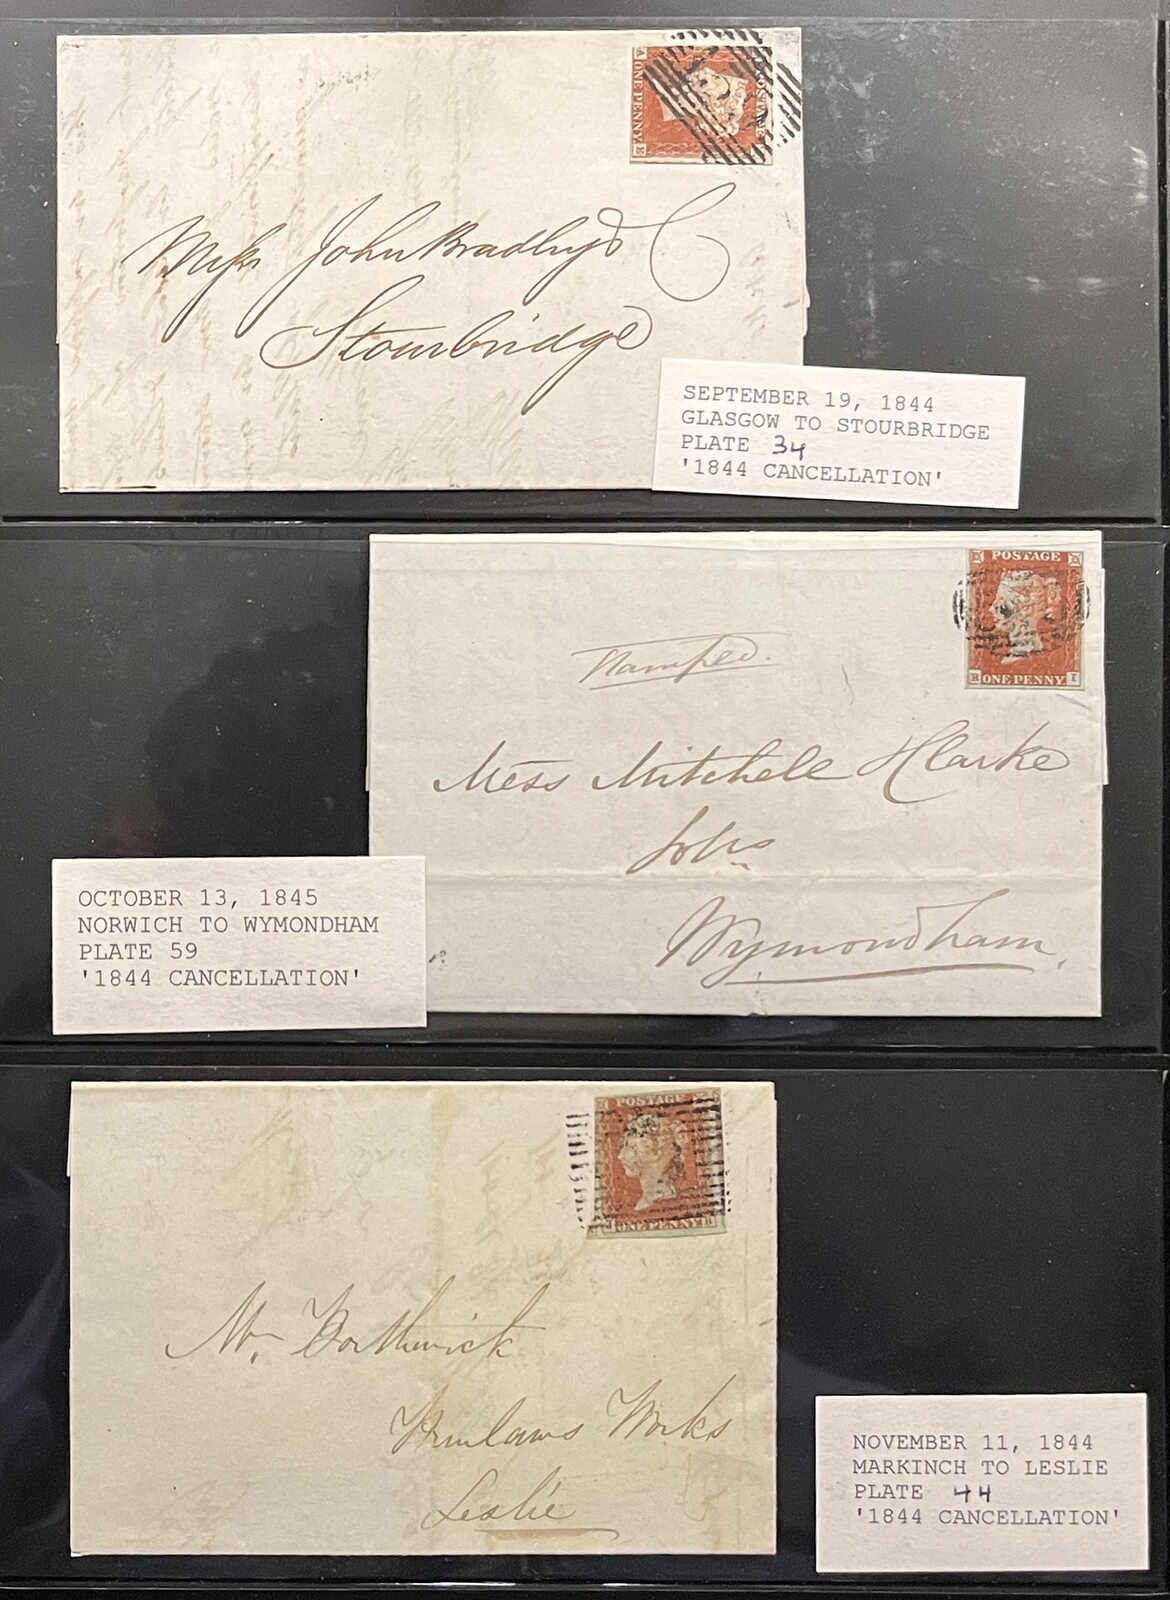 POSTAGE
ONE PENNY
A E
Messrs John Bradley & C
Stourbridge
SEPTEMBER 19, 1844
GLASGOW TO STOURBRIDGE
PLATE 34
'1844 CANCELLATION'
POSTAGE
R ONE PENNY I
Stamped.
Mess Mitchell & Clarke
Solrs
Wymondham.
OCTOBER 13, 1845
NORWICH TO WYMONDHAM
PLATE 59
'1844 CANCELLATION'
POSTAGE
ONE PENNY
Mr. Borthwick
Works
Leslie
NOVEMBER 11, 1844
MARKINCH TO LESLIE
PLATE 44
'1844 CANCELLATION'